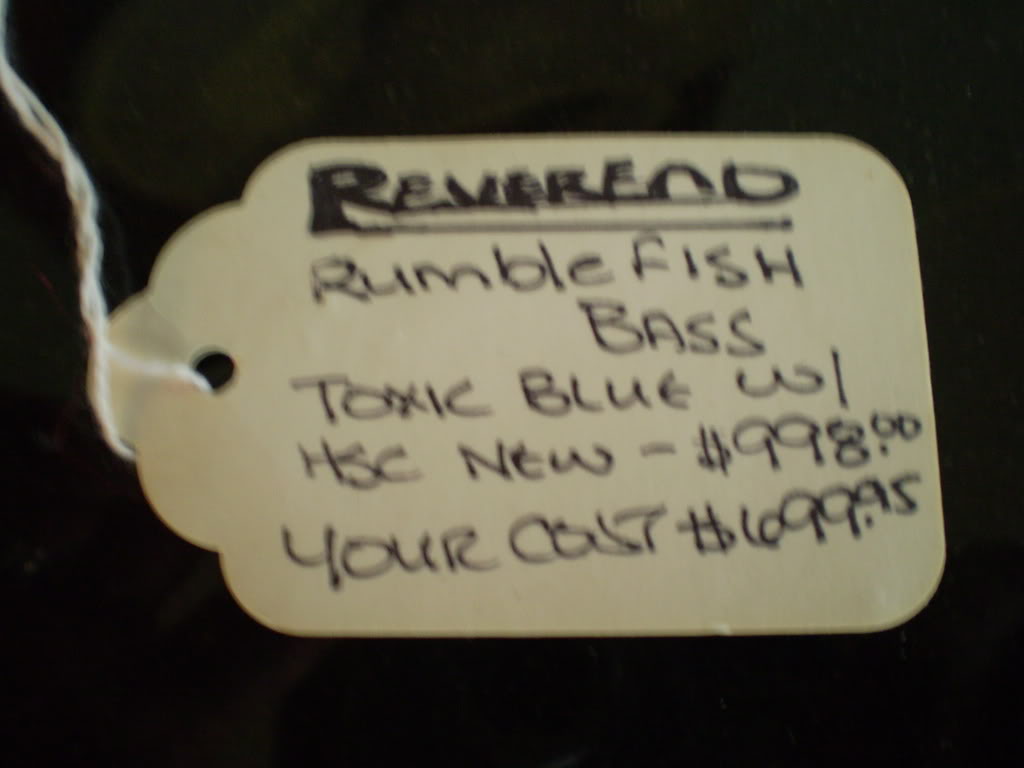 REVEREND
RumbleFISH
BASS
TOXIC BLUE W/
HSC NEW - $998.00
YOUR COST $699.95